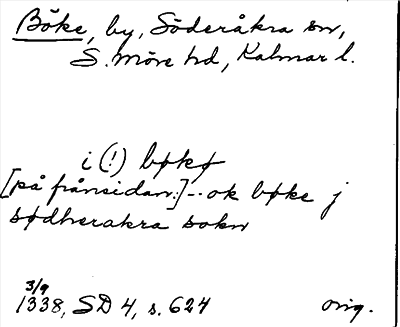 Böke, by, Söderåkra sn,
S. Möre hd, Kalmar l.
i (!) bøkø
[på frånsidan:] -- ok bøke j
sødherakra sokn
3/9
1338, SD 4, s. 624 orig.